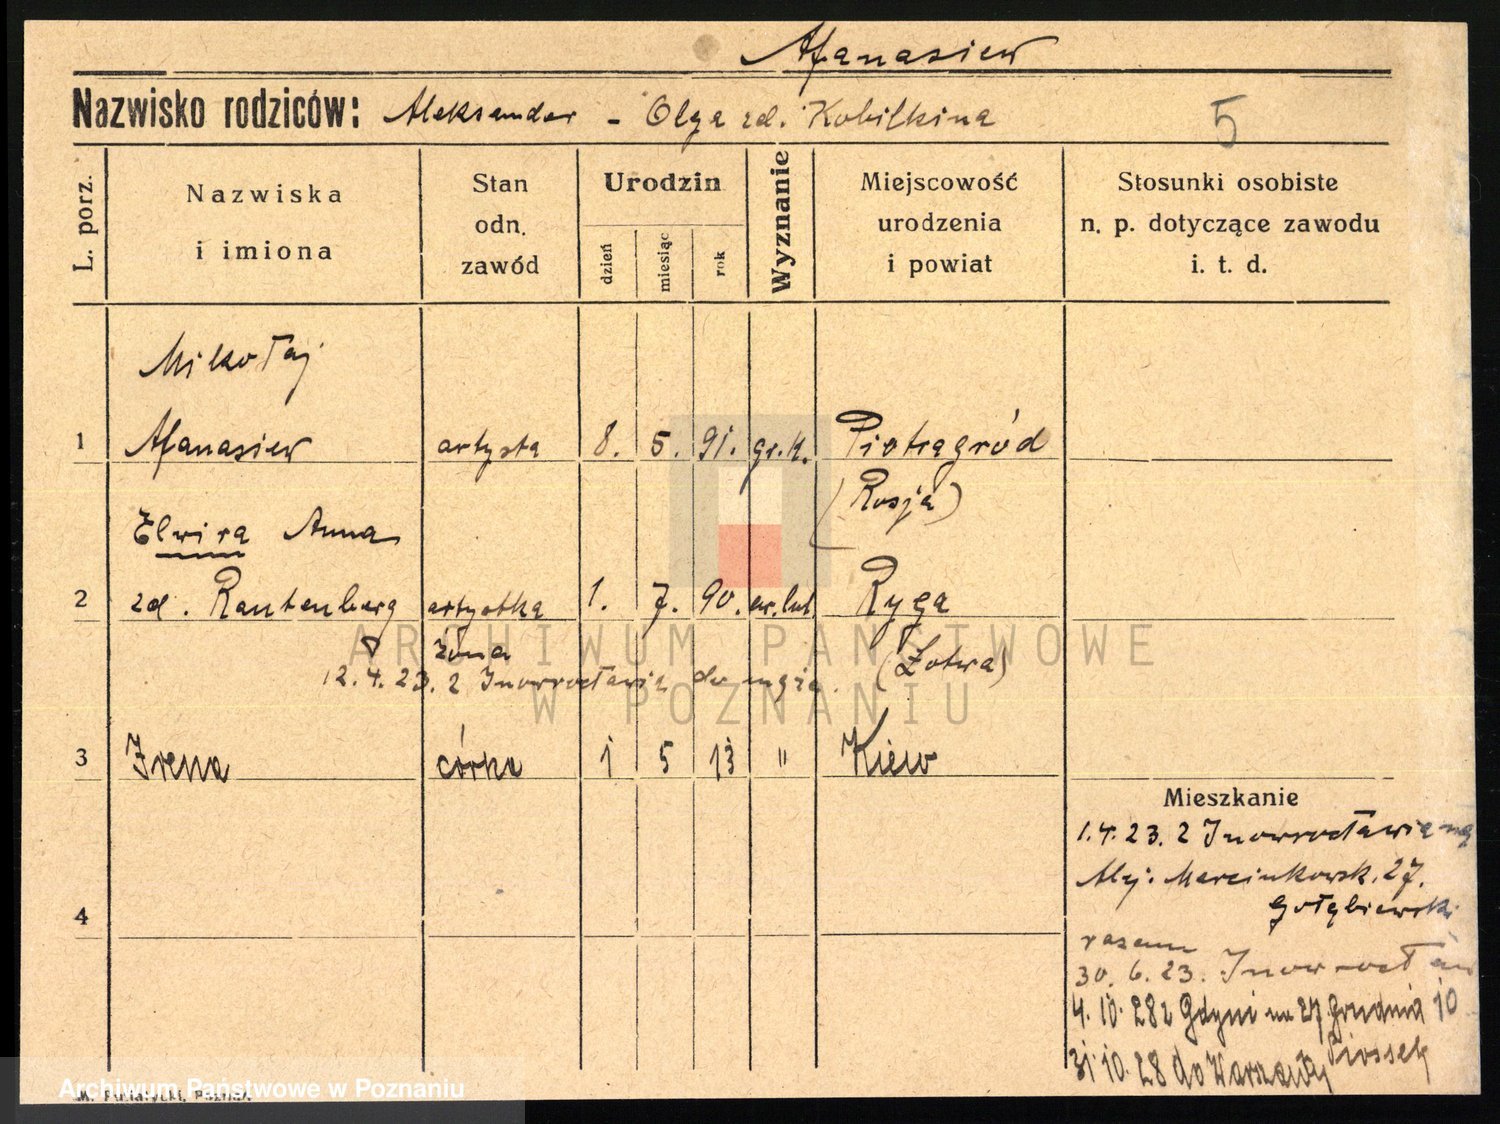 Afanasiew
Nazwisko rodziców: Aleksander - Olga zd. Kobiłkina
5
L. porz.
Nazwiska i imiona
Stan odn. zawód
Urodzin
dzień
miesiąc
rok
Wyznanie
Miejscowość urodzenia i powiat
Stosunki osobiste n. p. dotyczące zawodu i. t. d.
Mikołaj
1 Afanasiew artysta 8. 5. 91. gr. k. Piotrogród
(Rosja)
Elwira Anna
2 zd. Rautenberg artystka 1. 7. 90. ew. lut. Ryga
żona (Łotwa)
12.4.23. z Inowrocławia do męża.
3 Irena córka 1 5 13 " Kiew
4
Mieszkanie
1.4.23. z Inowrocławia na
Alej. Marcinkowsk. 27.
Gołębiewski
razem
30.6.23. Inowrocław
4.10.28 z Gdyni na 27 Grudnia 10
Piossek
31.10.28 do Warszawy
ARCHIWUM PAŃSTWOWE
W POZNANIU
Archiwum Państwowe w Poznaniu